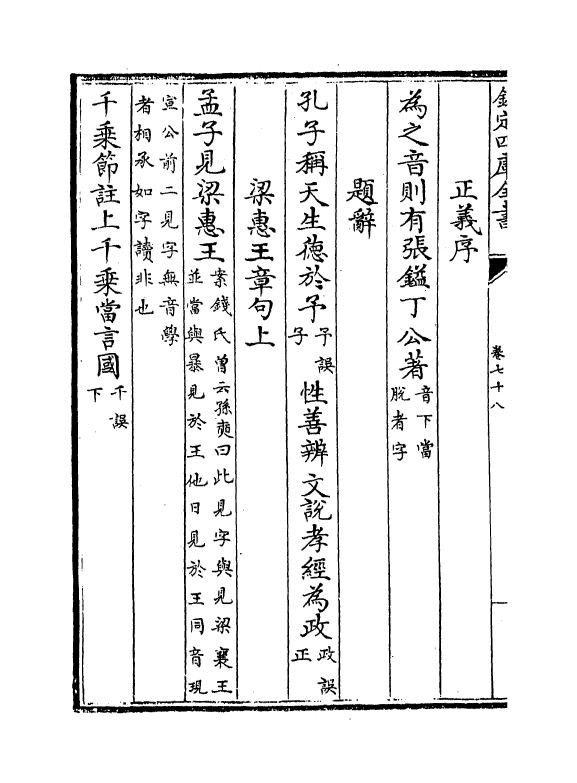 欽定四庫全書
卷七十八
正義序
為之音則有張鎰丁公著音下當脫者字
題辭
孔子稱天生徳於予予誤子 性善辨文說孝經為政政誤正
梁惠王章句上
孟子見梁惠王案錢氏曾云孫奭曰此見字與見梁襄王並當與暴見於王他日見於王同音現
宣公前二見字無音學者相承如字讀非也
千乘節註上千乘當言國千誤下